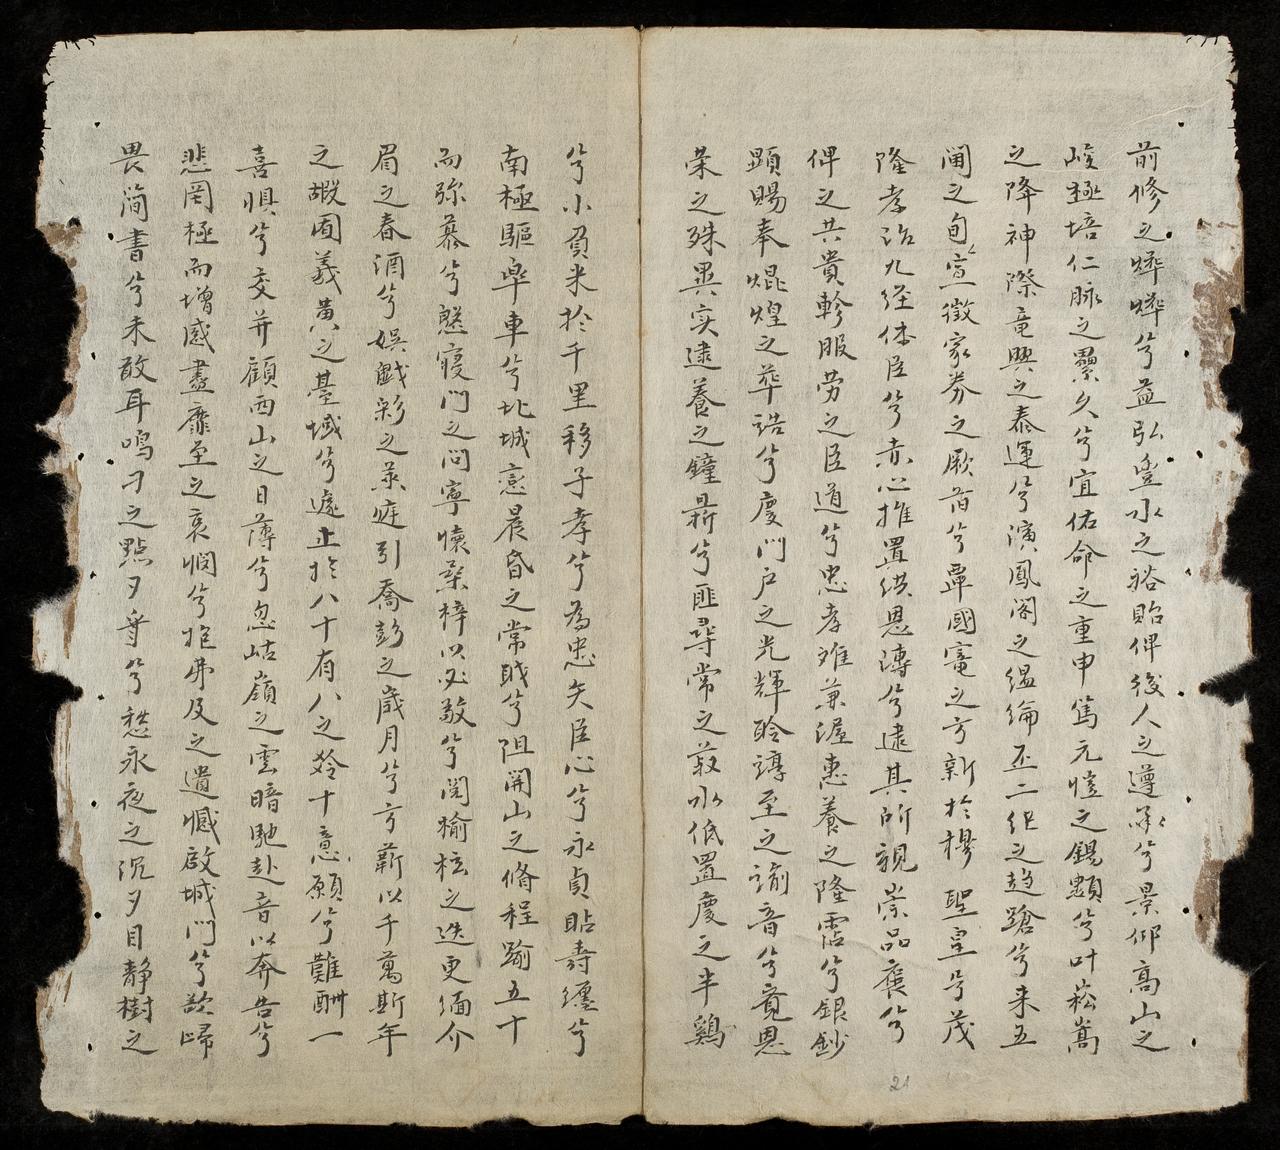 前修之燁燁兮益弘豊水之裕貽俾後人之遵承兮景仰高山之
峻極培仁脉之纍久兮宜佑命之重申篤元愷之錫顯兮叶崧嵩
之降神際竜興之泰運兮演鳳閣之温綸丕二紀之趋蹌兮来五
閫之旬宣徵家券之厥首兮覃國寵之方新於穆聖皇兮茂
隆孝治九経体臣兮赤心推置洪恩溥兮逮其所親崇品褒兮
俾之共貴軫服劳之臣道兮忠孝难兼渥惠養之隆霑兮銀鈔
顕賜奉焜煌之華誥兮慶門户之光輝聆諄至之諭音兮竟恩
荣之殊異实逮養之鐘鼎兮匪尋常之菽水低置慶之半鷄
兮小負米於千里移子孝兮為忠矢臣心兮永貞贴壽纒兮
南極驅皁車兮北城恋晨昏之常戝兮阻開山之脩程踰五十
而弥慕兮愍寝门之问寧懐桑梓以必敬兮閲榆柱之迭更缅介
眉之春酒兮娯戱彩之莱庭引喬彭之歳月兮方蘄以千萬斯年
之嘏囿羲黄之臺域兮遽止於八十有八之龄十意願兮難酬一
喜惧兮交并顧西山之日薄兮忽岵嶺之雲暗馳赴音以奔告兮
悲罔極而增感盡靡至之哀悯兮抱弗及之遺憾啟城门兮欲歸
畏简書兮未敢耳鸣刁之點夕聲兮愁永夜之沉夕目静樹之